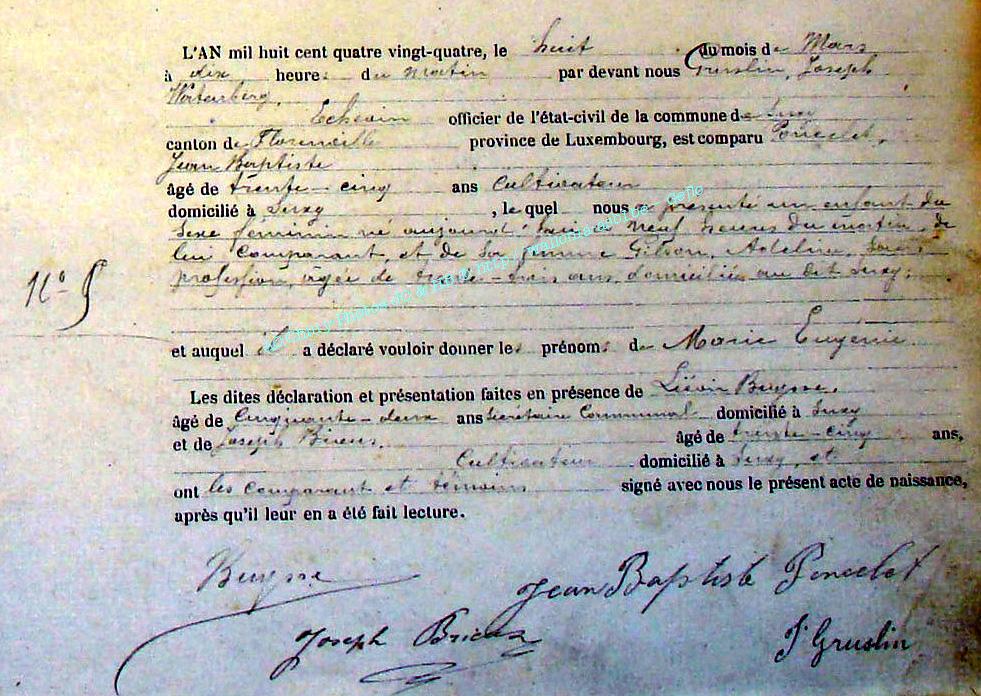 L'AN mil huit cent quatre vingt-quatre, le huit du mois de Mars
à dix heures du matin par devant nous Gruslin, Joseph
Echevin officier de l'état-civil de la commune de Suxy
canton de Florenville province de Luxembourg, est comparu Poncelet,
Jean Baptiste
âgé de trente-cinq ans Cultivateur
domicilié à Suxy , le quel nous a présenté un enfant du
Sexe féminin né aujourd'hui à neuf heures du matin, de
lui Comparant et de Sa femme Gilson, Adeline, Sans
profession, âgée de trois ans, domiciliés au dit Suxy.
N° 5
et auquel il a déclaré vouloir donner les prénoms de Marie Eugénie.
Les dites déclaration et présentation faites en présence de Liévin Buysse,
âgé de Cinquante-deux ans Secrétaire Communal domicilié à Suxy
et de Joseph Brieux, âgé de trente-cinq ans,
Cultivateur domicilié à Suxy, et
ont les comparant et témoins signé avec nous le présent acte de naissance,
après qu'il leur en a été fait lecture.
Buysse
Jean Baptiste Poncelet
Joseph Brieux
J Gruslin